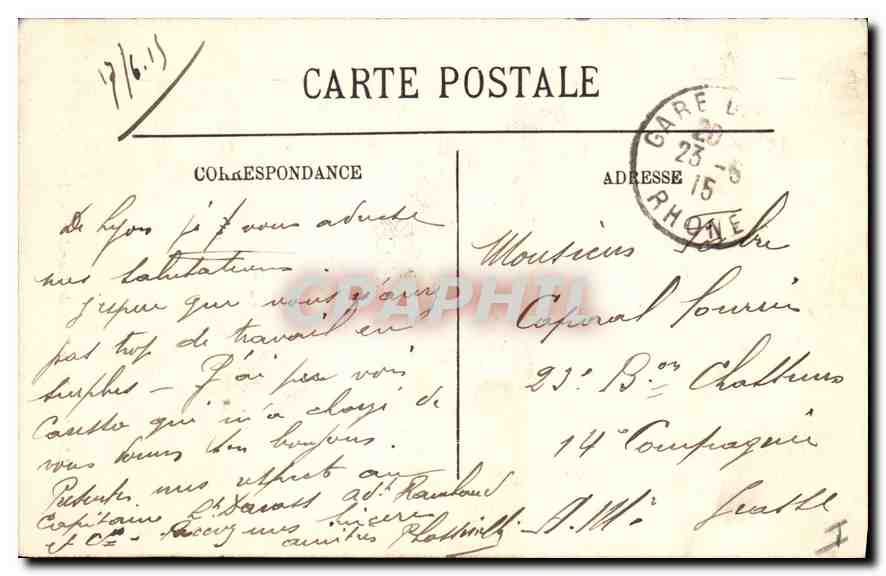 17/6.15
CARTE POSTALE
CORRESPONDANCE
ADRESSE
GARE
20
23 -6
15
RHONE
De Lyon je vous adresse
mes salutations.
J'espere que vous n'avez
pas trop de travail en
surplus - J'ai pu voir
qui m'a chargé de
vous donner son bonjour.
Presentez mes respect au
Capitaine Lt adjt Rambaud
et Cie - Recevez mes sinceres
amitiés
CPAPHIL
Monsieur
Caporal Fourrier
23e Bon Chasseurs
14e Compagnie
A.M. Grasse